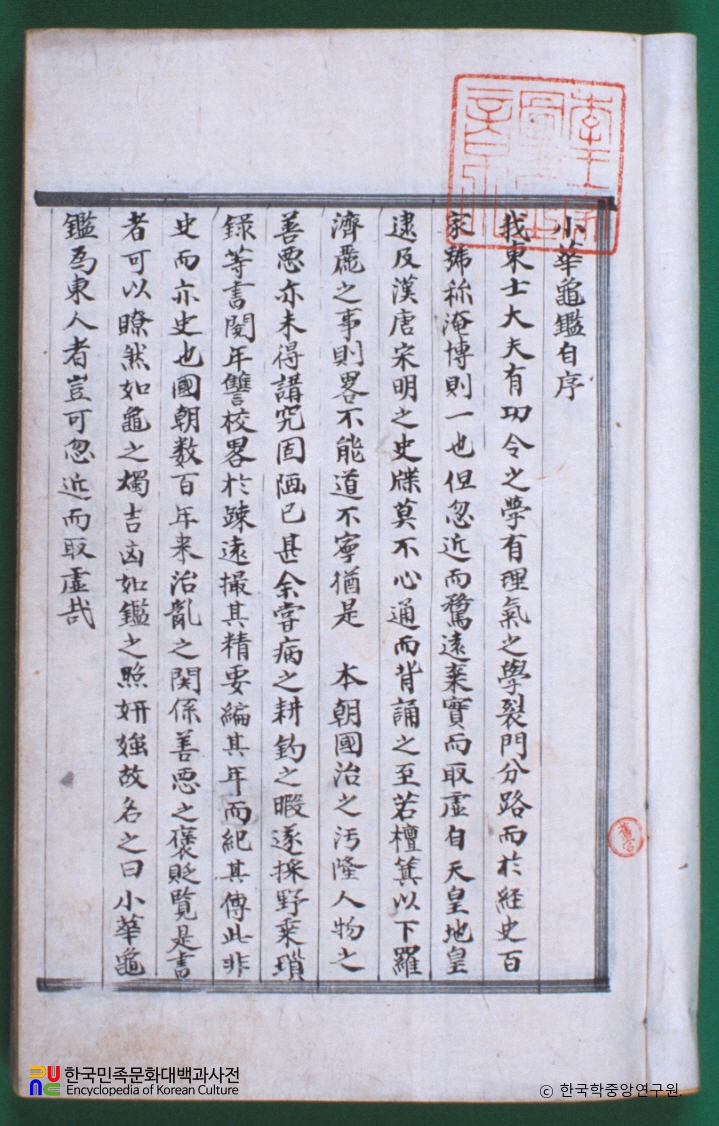 小華龜鑑自序
我東士大夫有功令之學有理氣之學裂門分路而於経史百
家號称淹博則一也但忽近而騖遠棄實而取虛自天皇地皇
逮及漢唐宋明之史牒莫不心通而背誦之至若檀箕以下羅
濟麗之事則畧不能道不寧猶是 本朝國治之汚隆人物之
善悪亦未得講究固陋已甚余甞病之耕釣之暇遂採野乘瑣
録等書閱年讐校畧於踈遠撮其精要編其年而紀其傳此非
史而亦史也國朝数百年来治亂之関係善悪之褒貶覧是書
者可以瞭然如龜之燭吉凶如鑑之照姸媸故名之曰小華龜
鑑爲東人者豈可忽近而取虛哉
한국민족문화대백과사전
Encyclopedia of Korean Culture
© 한국학중앙연구원